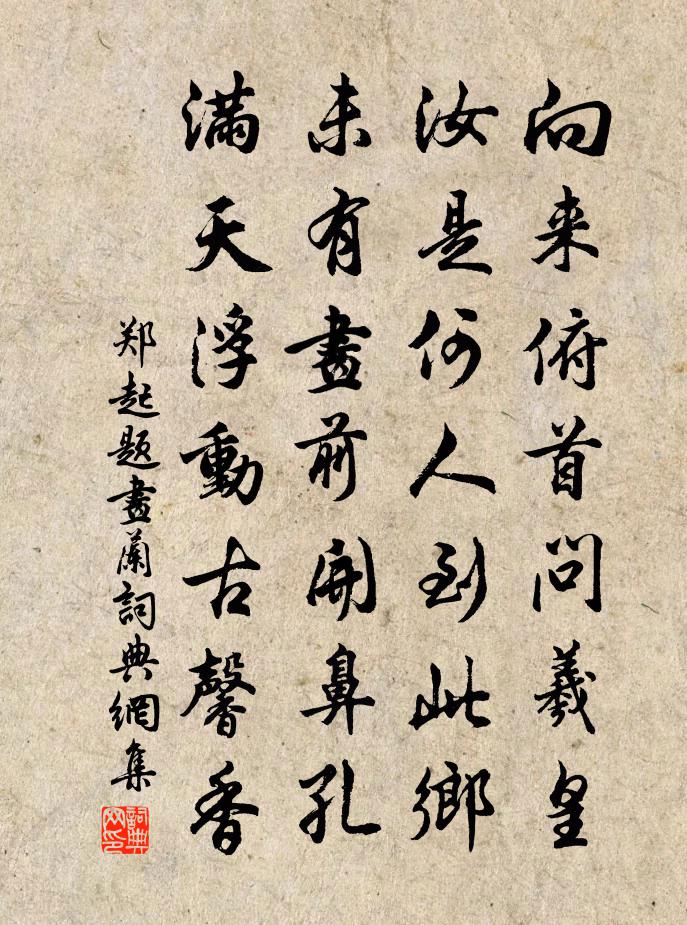 向来俯首問羲皇
汝是何人到此鄉
未有畫前開鼻孔
满天浮動古馨香
郑起题畫蘭詞典網集
詞典网印